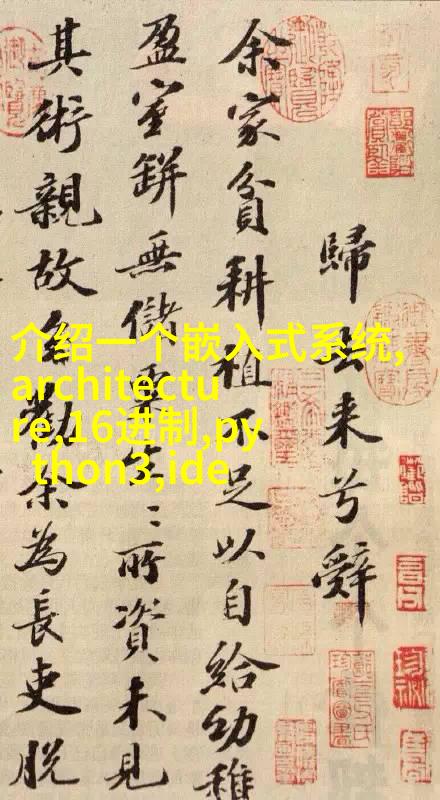 歸去来兮辭
余家貧耕植不足以自給幼稚
盈室缾無儲粟生〻所資未見
其術親故多勸余為長吏脱
介绍一个嵌入式系统,
architectu
re,16进制,py
thon3,ide